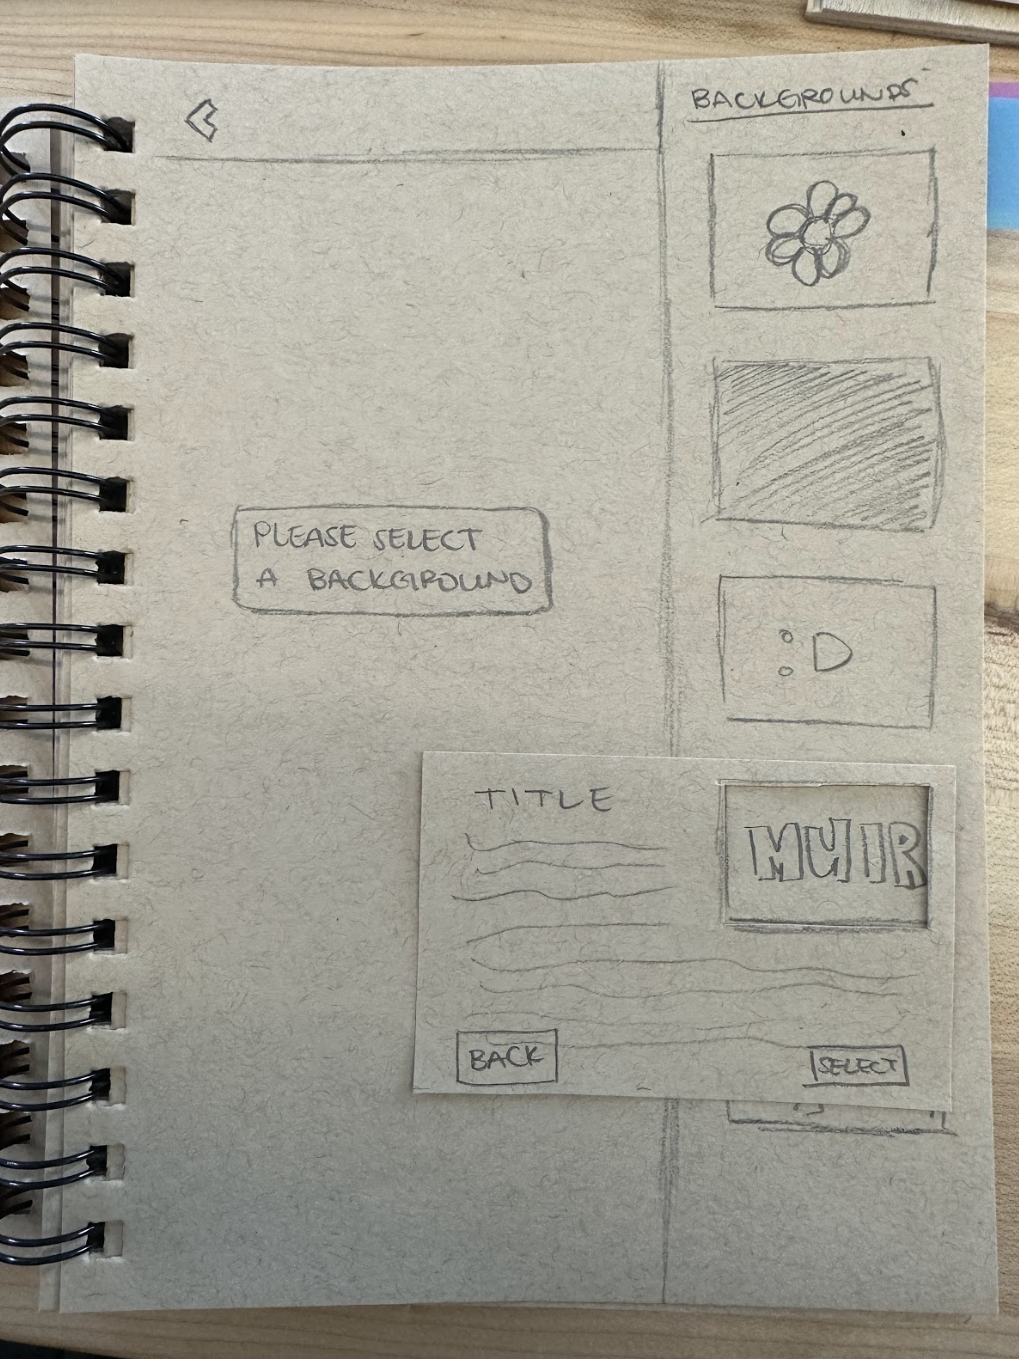 BACKGROUNDS
PLEASE SELECT
A BACKGROUND
:D
TITLE
MUIR
BACK
SELECT